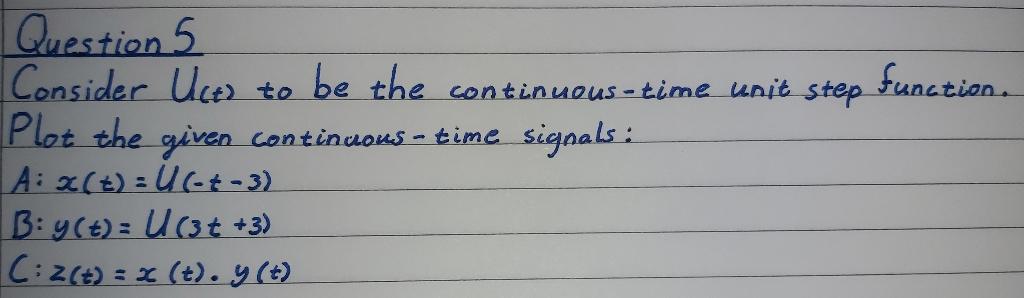 Question 5
Consider U(t) to be the continuous-time unit step function.
Plot the given continuous-time signals:
A: x(t) = U(-t-3)
B: y(t) = U(3t+3)
C: z(t) = x(t). y(t)